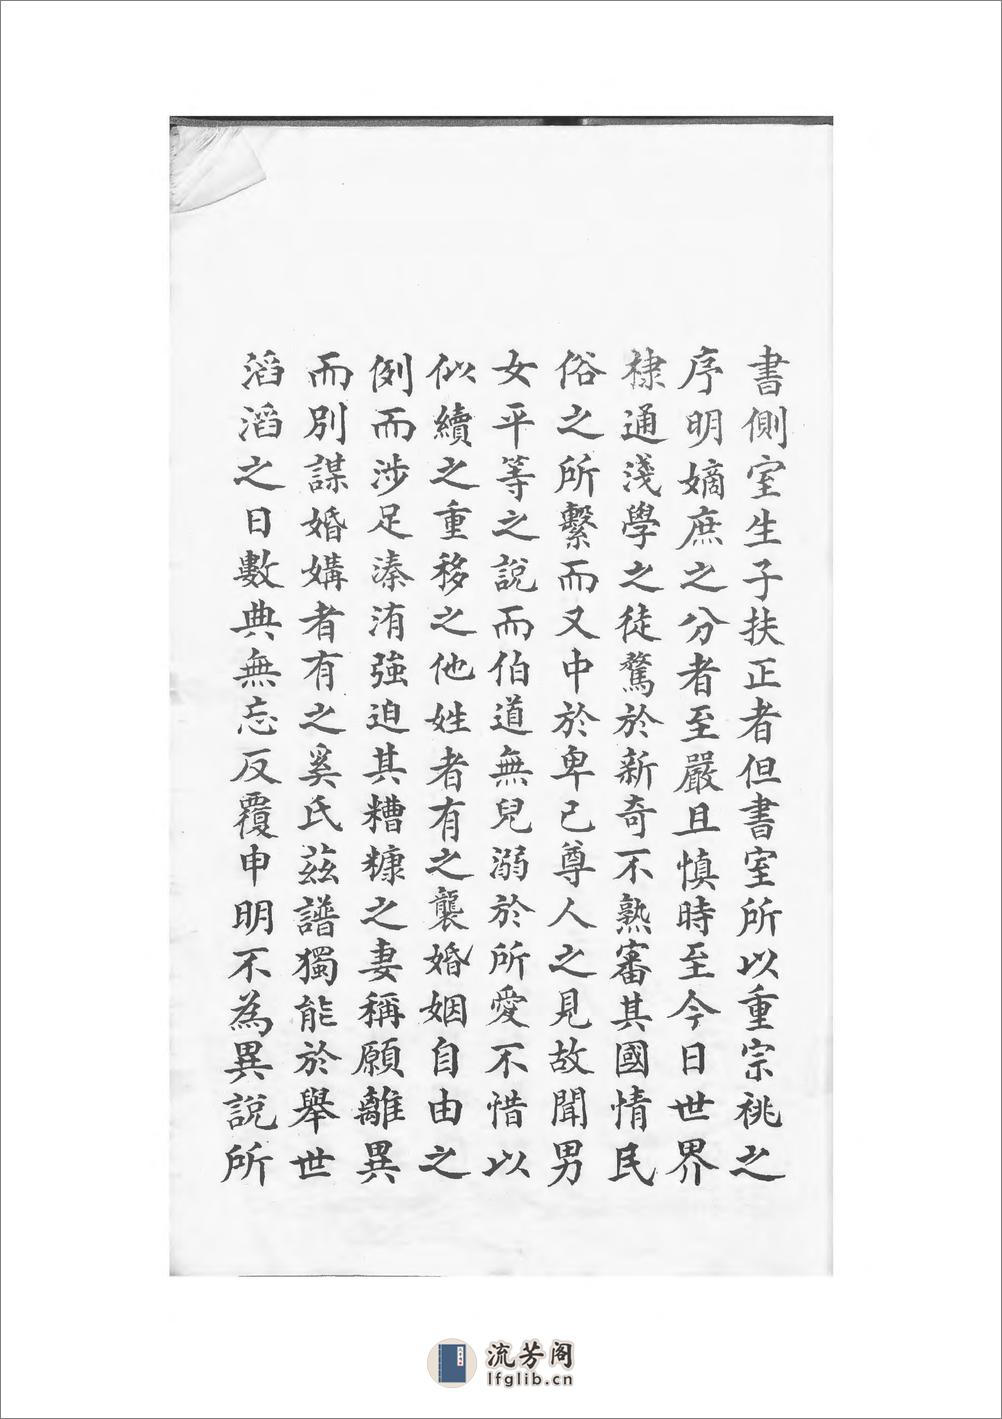 書側室生子扶正者但書室所以重宗祧之
序明嫡庶之分者至嚴且慎時至今日世界
棣通淺學之徒騖於新奇不熟審其國情民
俗之所繫而又中於卑己尊人之見故聞男
女平等之說而伯道無兒溺於所愛不惜以
似續之重移之他姓者有之襲婚姻自由之
例而涉足溱洧強迫其糟糠之妻稱願離異
而別謀婚媾者有之奚氏茲譜獨能於舉世
滔滔之日數典無忘反覆申明不為異說所
流芳阁
lfglib.cn